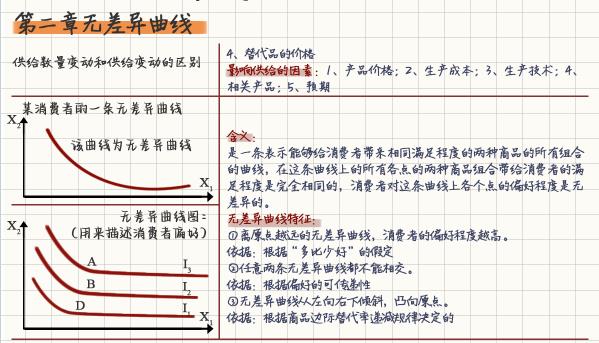 第二章无差异曲线
供给数量变动和供给变动的区别
4、替代品的价格
影响供给的因素：1、产品价格；2、生产成本；3、生产技术；4、
相关产品；5、预期
某消费者的一条无差异曲线
X₂
该曲线为无差异曲线
X₁
含义：
是一条表示能够给消费者带来相同满足程度的两种商品的所有组合
的曲线，在这条曲线上的所有各点的两种商品组合带给消费者的满
足程度是完全相同的，消费者对这条曲线上各个点的偏好程度是无
差异的。
无差异曲线图：
（用来描述消费者偏好）
X₂
A
I₃
B
I₂
D
I₁
X₁
无差异曲线特征：
①离原点越远的无差异曲线，消费者的偏好程度越高。
依据：根据“多比少好”的假定
②任意两条无差异曲线都不能相交。
依据：根据偏好的可传递性
③无差异曲线从左向右下倾斜，凸向原点。
依据：根据商品边际替代率递减规律决定的